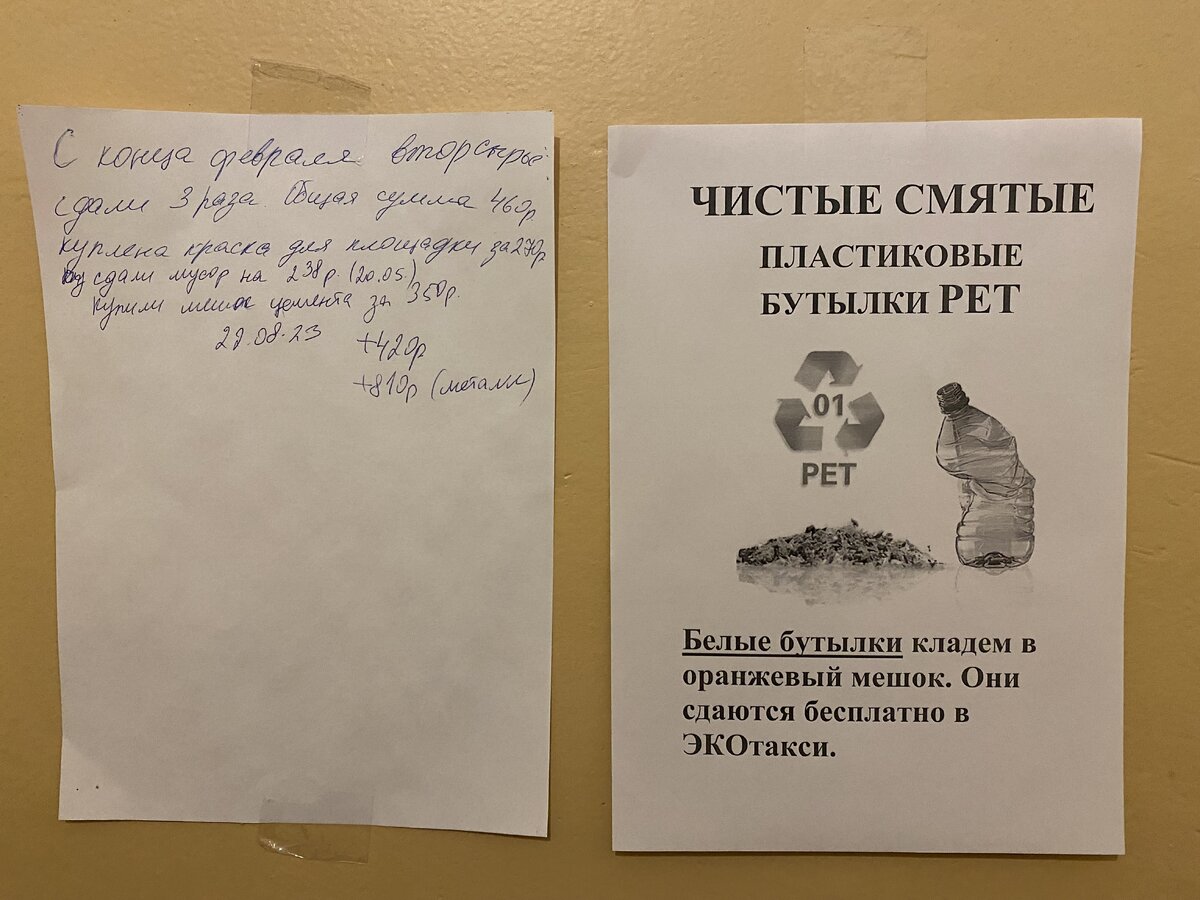 С конца февраля вторсырьё
сдали 3 раза. Общая сумма 460р
куплена краска для площадки за 270р
сдали мусор на 238р. (20.05)
Купили мешок цемента за 350р.
22.08.23
+420р
+810р (металл)
ЧИСТЫЕ СМЯТЫЕ
ПЛАСТИКОВЫЕ
БУТЫЛКИ PET
01
PET
Белые бутылки кладем в
оранжевый мешок. Они
сдаются бесплатно в
ЭКОтакси.